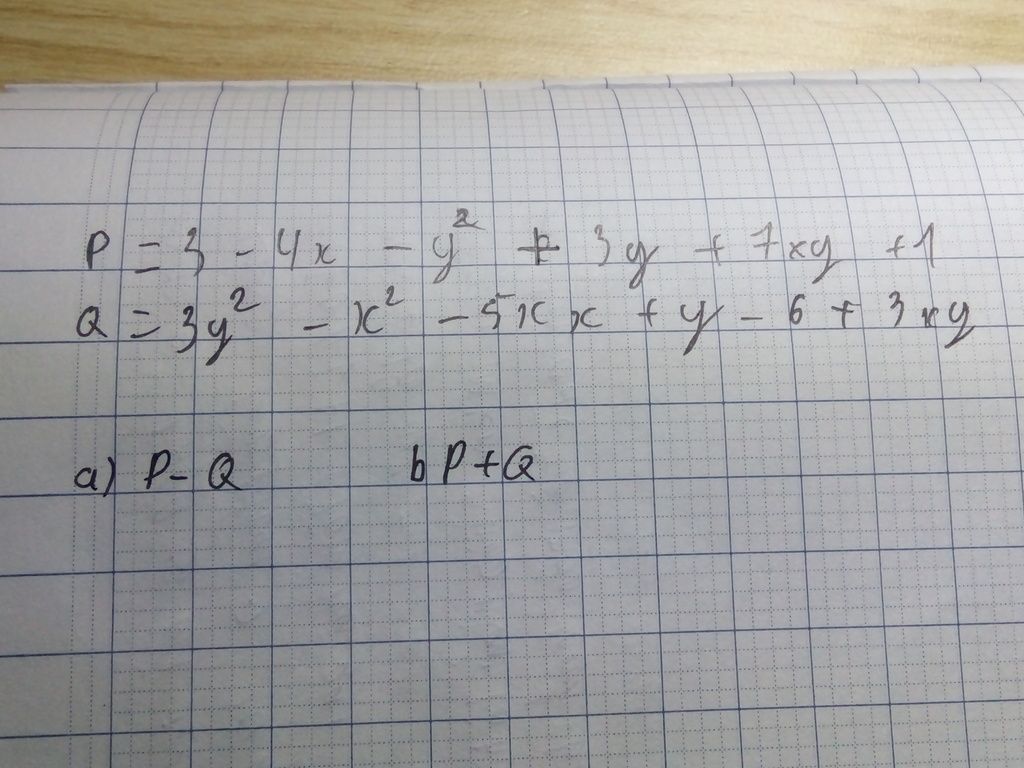 P = 3 - 4x - y² + 3y + 7xy + 1
Q = 3y² - x² - 5x x + y - 6 + 3xy
a) P - Q b P + Q